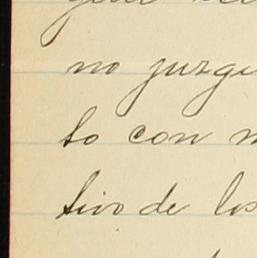 no juzgu
to con m
tivo de los